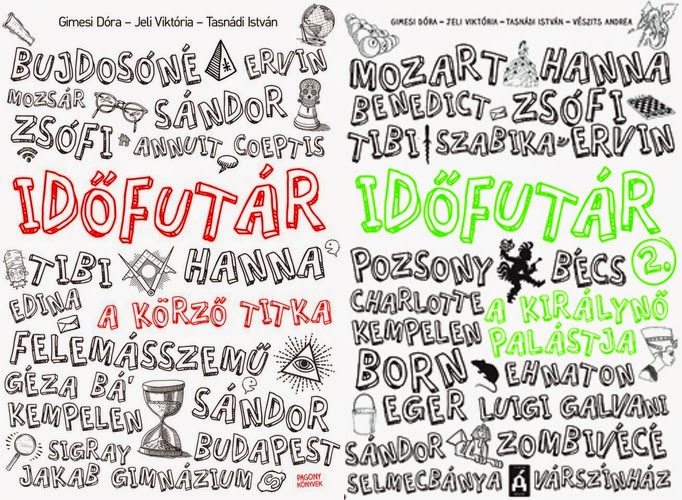 Gimesi Dóra – Jeli Viktória – Tasnádi István
BUJDOSÓNÉ ERVIN
MOZSÁR SÁNDOR
ZSÓFI ANNUIT COEPTIS
IDŐFUTÁR
TIBI HANNA
EDINA A KÖRZŐ TITKA
FELEMÁSSZEMŰ
GÉZA BÁ'
KEMPELEN SÁNDOR
SIGRAY BUDAPEST
JAKAB GIMNÁZIUM
PAGONY
KÖNYVEK
GIMESI DÓRA – JELI VIKTÓRIA – TASNÁDI ISTVÁN – VÉSZITS ANDREA
MOZART HANNA
BENEDICT ZSÓFI
TIBI SZABIKA ERVIN
IDŐFUTÁR
2.
POZSONY BÉCS
CHARLOTTE A KIRÁLYNŐ
KEMPELEN PALÁSTJA
BORN EHNATON
EGER LUIGI GALVANI
SÁNDOR ZOMBIVÉCÉ
SELMECBÁNYA VÁRSZÍNHÁZ